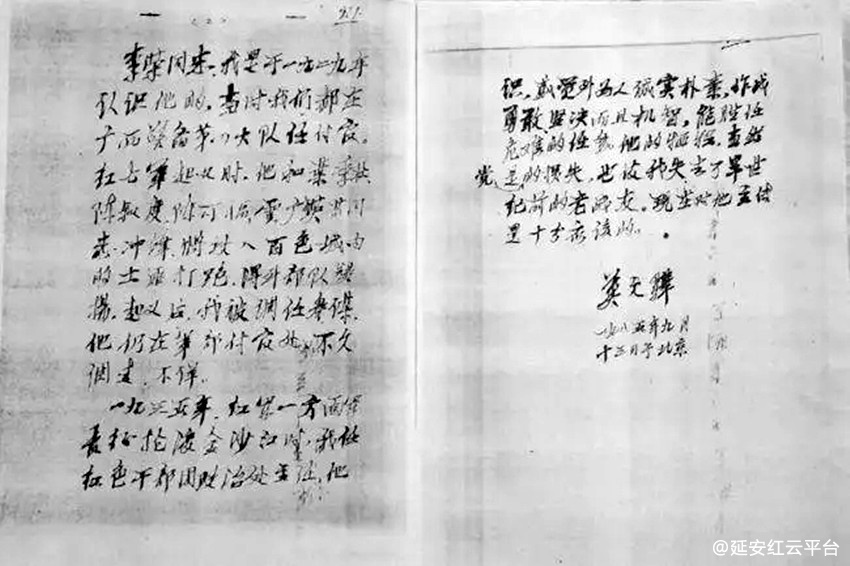 (2)
李荣同志，我是于一九二九年
认识他的。当时我们都在
广西警备第八大队任付官。
红七军起义时，他和叶季壮
陈叔度陈可 广横等同
志冲锋，将攻入百色城内
的土匪打死，得到部队赞
扬。起义后，我被调任参谋，
他仍在军部付官处，不久
调走，不详。
一九三五年，红军一方面军
长征抢渡金沙江时，我任
红色干部团政治处主任，他
识，感觉到为人诚实朴素，作战
勇敢坚决而且机智，能胜任
危难的任务。他的牺牲，当然
是党的损失，也使我失去了半世
纪前的老战友。现在对他立传
是十分应该的。
莫文骅
一九八五年九月
十三日于北京
@延安红云平台